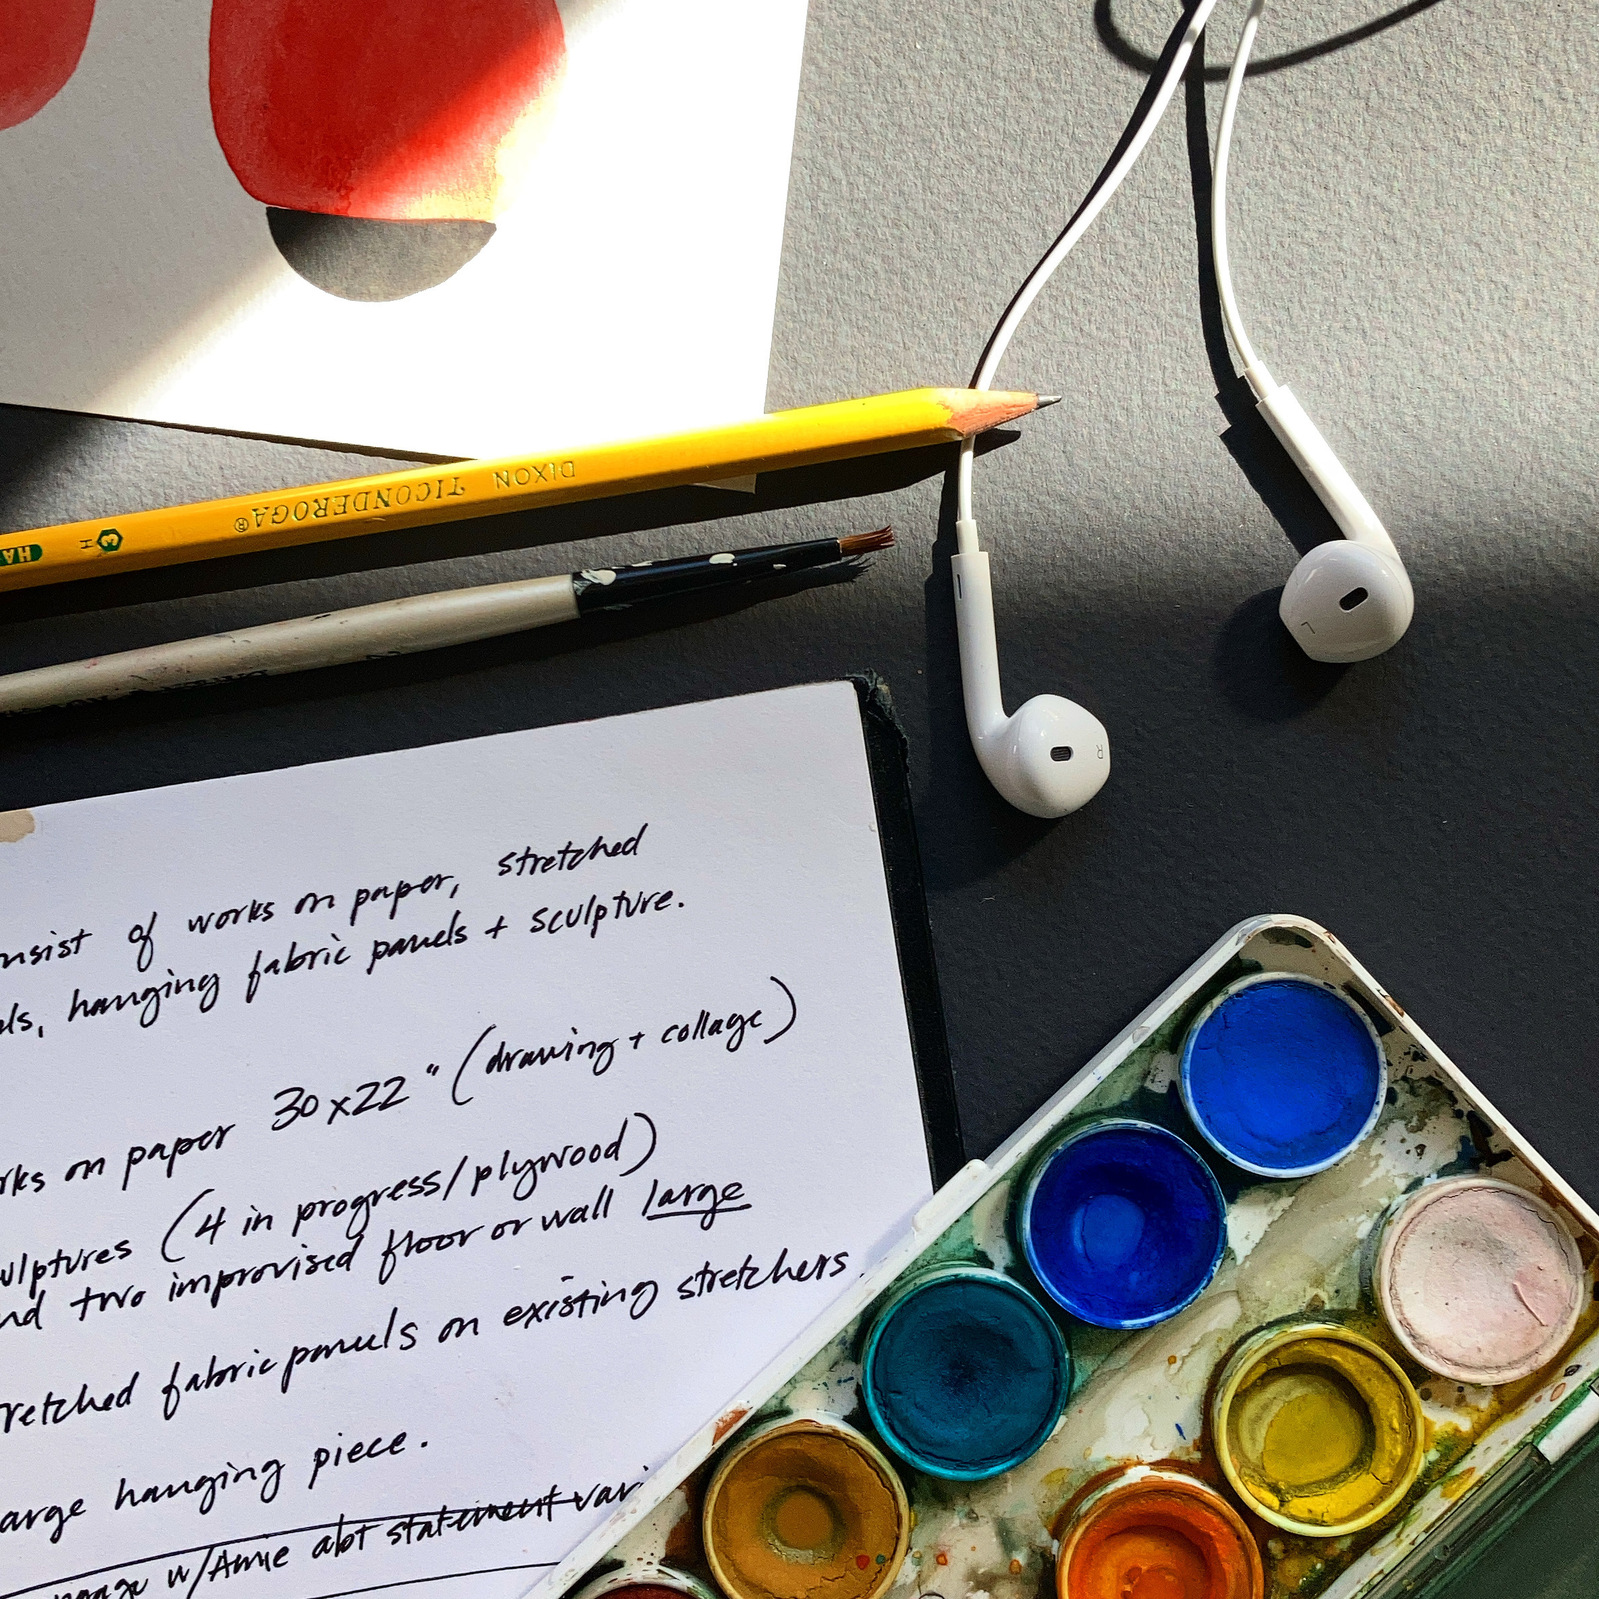 DIXON TICONDEROGA®
H
HA
L
R
nsist of works on paper, stretched
ls, hanging fabric panels + sculpture.
rks on paper 30x22" (drawing + collage)
ulptures (4 in progress/plywood)
nd two improvised floor or wall large
retched fabric panels on existing stretchers.
arge hanging piece.
w/Amie abt statement vari